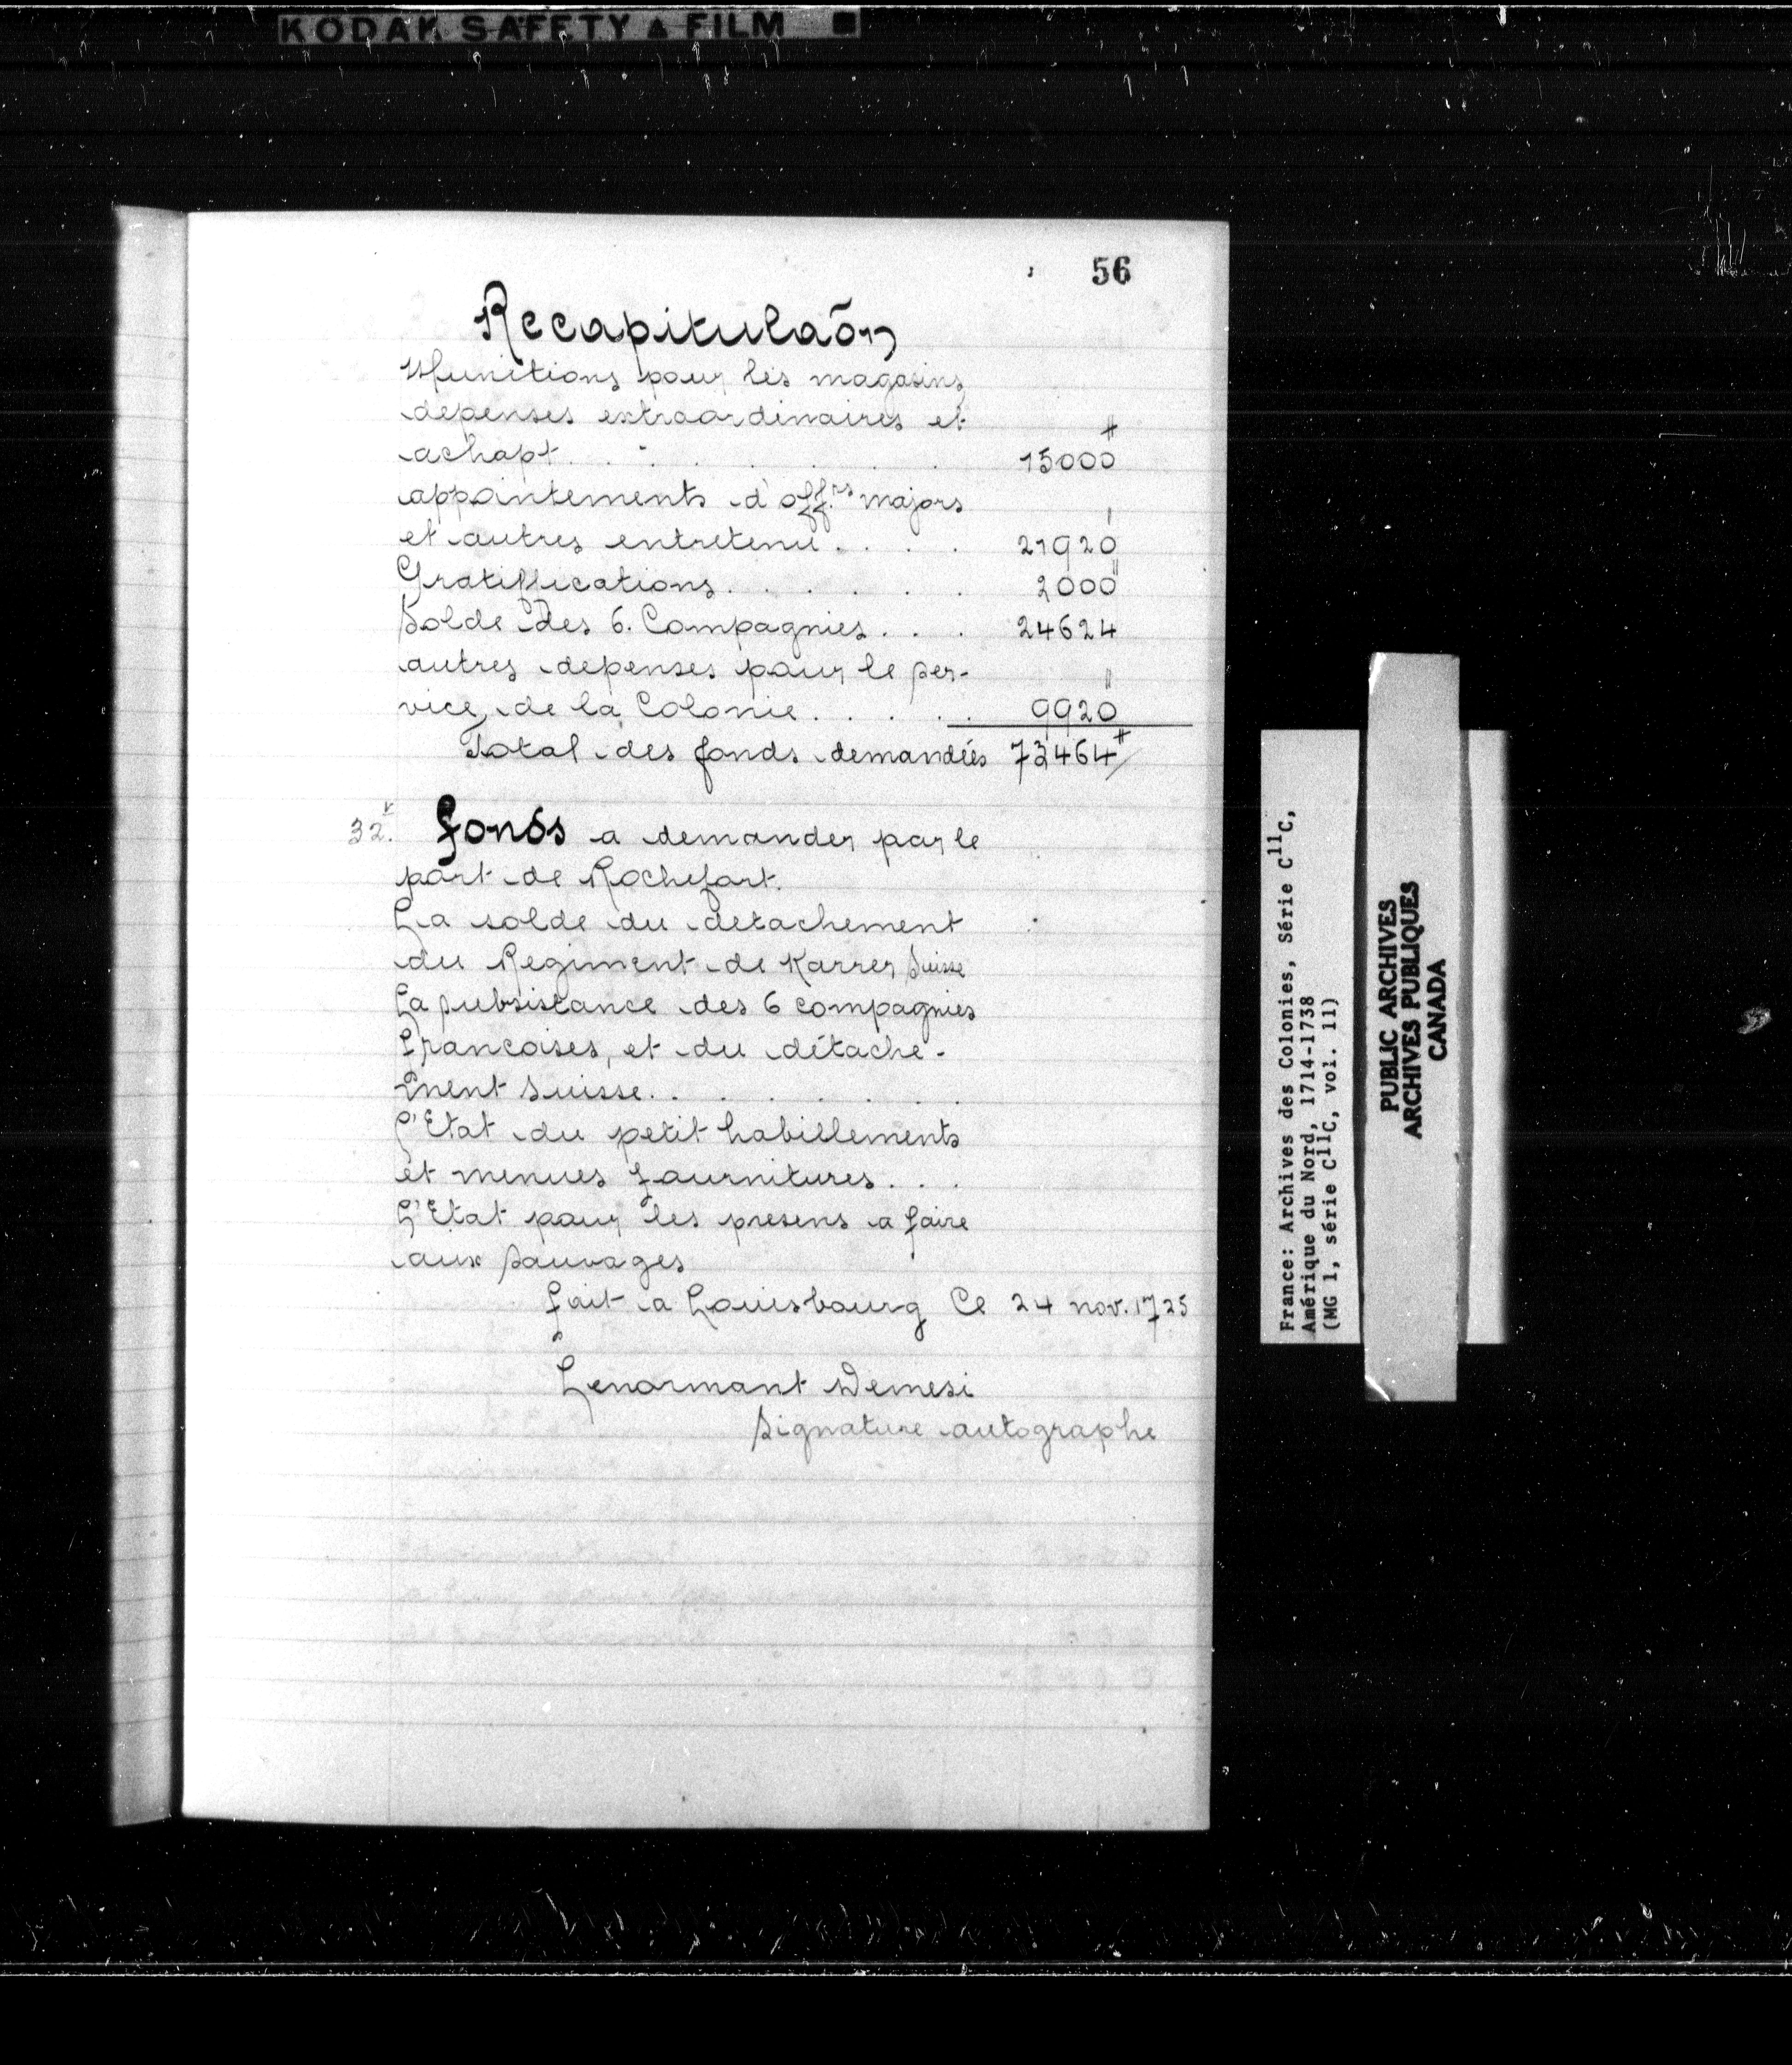 KODAK SAFETY FILM
56
Recapitulaõn
Munitions pour les magasins
depenses extraordinaires et
achapt . . . . . . . . 15000#
appointements d'off.rs majors
et autres entretenu . . . . 21920
Gratiffications . . . . . . 2000"
Solde des 6. Compagnies . . . 24624
autres depenses pour le ser-
vice de la Colonie . . . . . 9920"
Total des fonds demandées 73464#
32.v fonds a demander par le
port de Rochefort.
La solde du detachement
du Regiment de Karrer Suisse
La subsistance des 6 compagnies
francoises, et du détache-
ment Suisse . . . . . . . .
L'Etat du petit habillements
et menues fournitures . . .
L'Etat pour les presens a faire
aux Sauvages
fait a Louisbourg Ce 24 nov. 1725
Lenormant Demesi
Signature autographe
France: Archives des Colonies, Série C11C,
Amérique du Nord, 1714-1738
(MG 1, série C11C, vol. 11)
PUBLIC ARCHIVES
ARCHIVES PUBLIQUES
CANADA